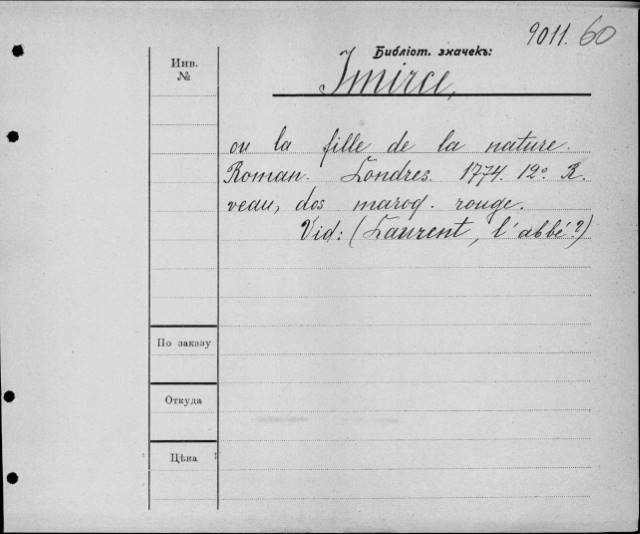 9011. 60
Библіот. значекъ:
Инв.
№
Imirce,
ou la fille de la nature.
Roman. Londres. 1774. 12° R.
veau, dos maroq. rouge.
Vid: (Laurent, l'abbé?)
По заказу
Откуда
Цѣна